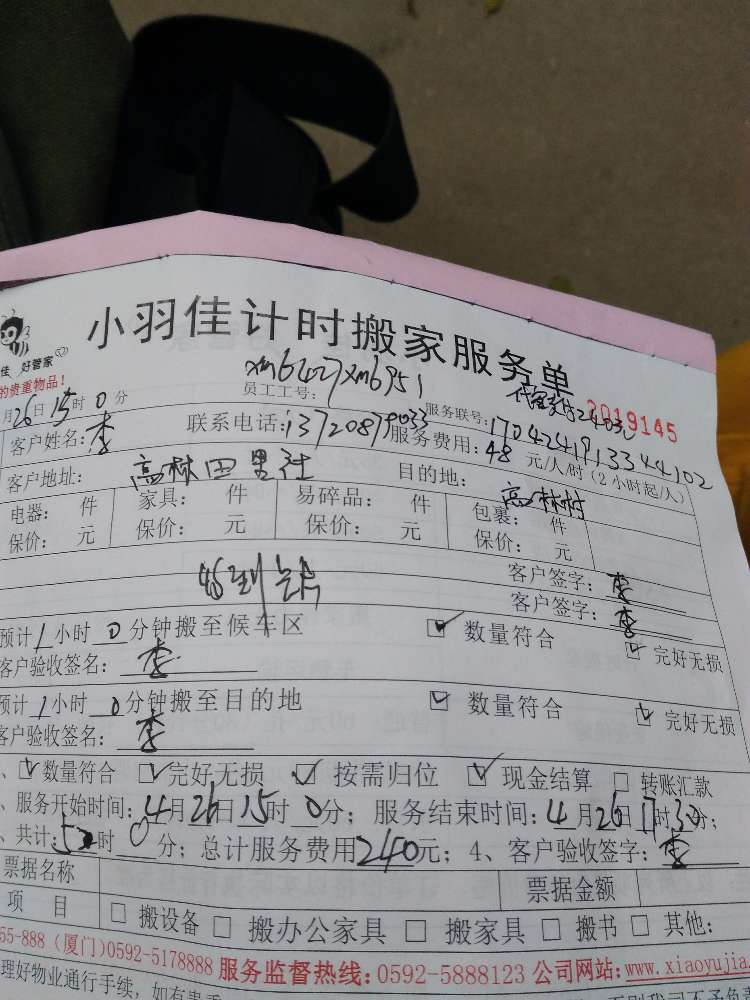 小羽佳计时搬家服务单
佳 好管家
的贵重物品!
员工工号: xm6427 xm6951
月26日15时0分
服务联号: 1704241913344102
2019145
客户姓名: 李
联系电话: 13720879033
服务费用: 48 元/人/时(2小时起/人)
客户地址: 高林田里社
目的地: 高林村
电器: 件 家具: 件 易碎品: 件 包裹: 件
保价: 元 保价: 元 保价: 元 保价: 元
客户签字: 李
客户签字: 李
预计1小时0分钟搬至候车区 ☑数量符合 ☑完好无损
客户验收签名: 李
预计1小时0分钟搬至目的地 ☑数量符合 ☑完好无损
客户验收签名: 李
、☑数量符合 ☑完好无损 ☑按需归位 ☑现金结算 □转账汇款
、服务开始时间: 4月26日15时0分; 服务结束时间: 4月26日17时30分;
、共计: 时0分; 总计服务费用240元; 4、客户验收签字: 李
票据名称 票据金额
项 目 □搬设备 □搬办公家具 □搬家具 □搬书 □其他:
55-888 (厦门)0592-5178888 服务监督热线: 0592-5888123 公司网站: www.xiaoyujia.
理好物业通行手续,如有贵重